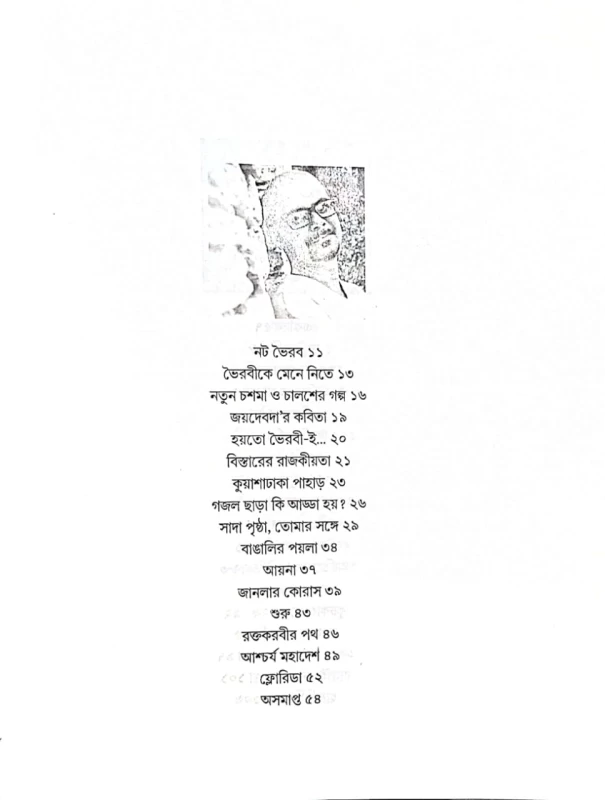 নট ভৈরব ১১
ভৈরবীকে মেনে নিতে ১৩
নতুন চশমা ও চালশের গল্প ১৬
জয়দেবদা'র কবিতা ১৯
হয়তো ভৈরবী-ই... ২০
বিস্তারের রাজকীয়তা ২১
কুয়াশাঢাকা পাহাড় ২৩
গজল ছাড়া কি আড্ডা হয়? ২৬
সাদা পৃষ্ঠা, তোমার সঙ্গে ২৯
বাঙালির পয়লা ৩৪
আয়না ৩৭
জানলার কোরাস ৩৯
শুরু ৪৩
রক্তকরবীর পথ ৪৬
আশ্চর্য মহাদেশ ৪৯
ফ্লোরিডা ৫২
অসমাপ্ত ৫৪